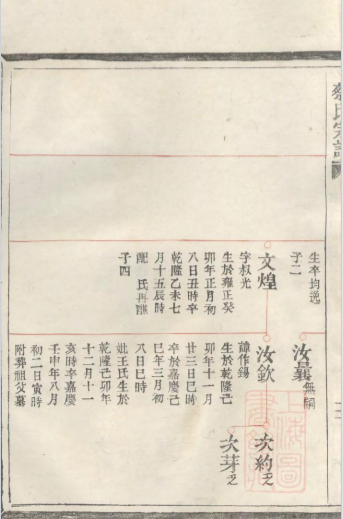 蔡氏宗譜
生卒均逸
子二
文煌
字叔光
生於雍正癸
卯年正月初
八日丑時卒
乾隆乙未七
月十五辰時
配 氏再醮
子四
汝曩
無嗣
汝欽
諱作錫
生於乾隆己
卯年十一月
廿三日巳時
卒於嘉慶己
巳年三月初
八日巳時
妣王氏生於
乾隆己卯年
十二月十一
亥時卒嘉慶
壬申年八月
初二日寅時
附葬祖父墓
次約之
次芽之